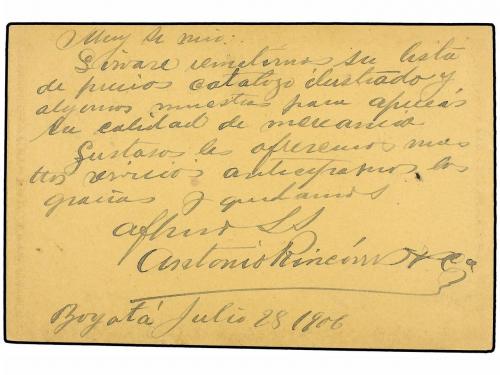 Muy Sr mio:
Sirvase remitirnos su lista
de precios catalogo ilustrado y
algunas muestras para apreciar
la calidad de mercancia
Gustosos les ofrecemos nues
tros servicios anticipamos las
gracias y quedamos
affmos SS
Antonio Rincón & Ca
Bogotá Julio 28 1906